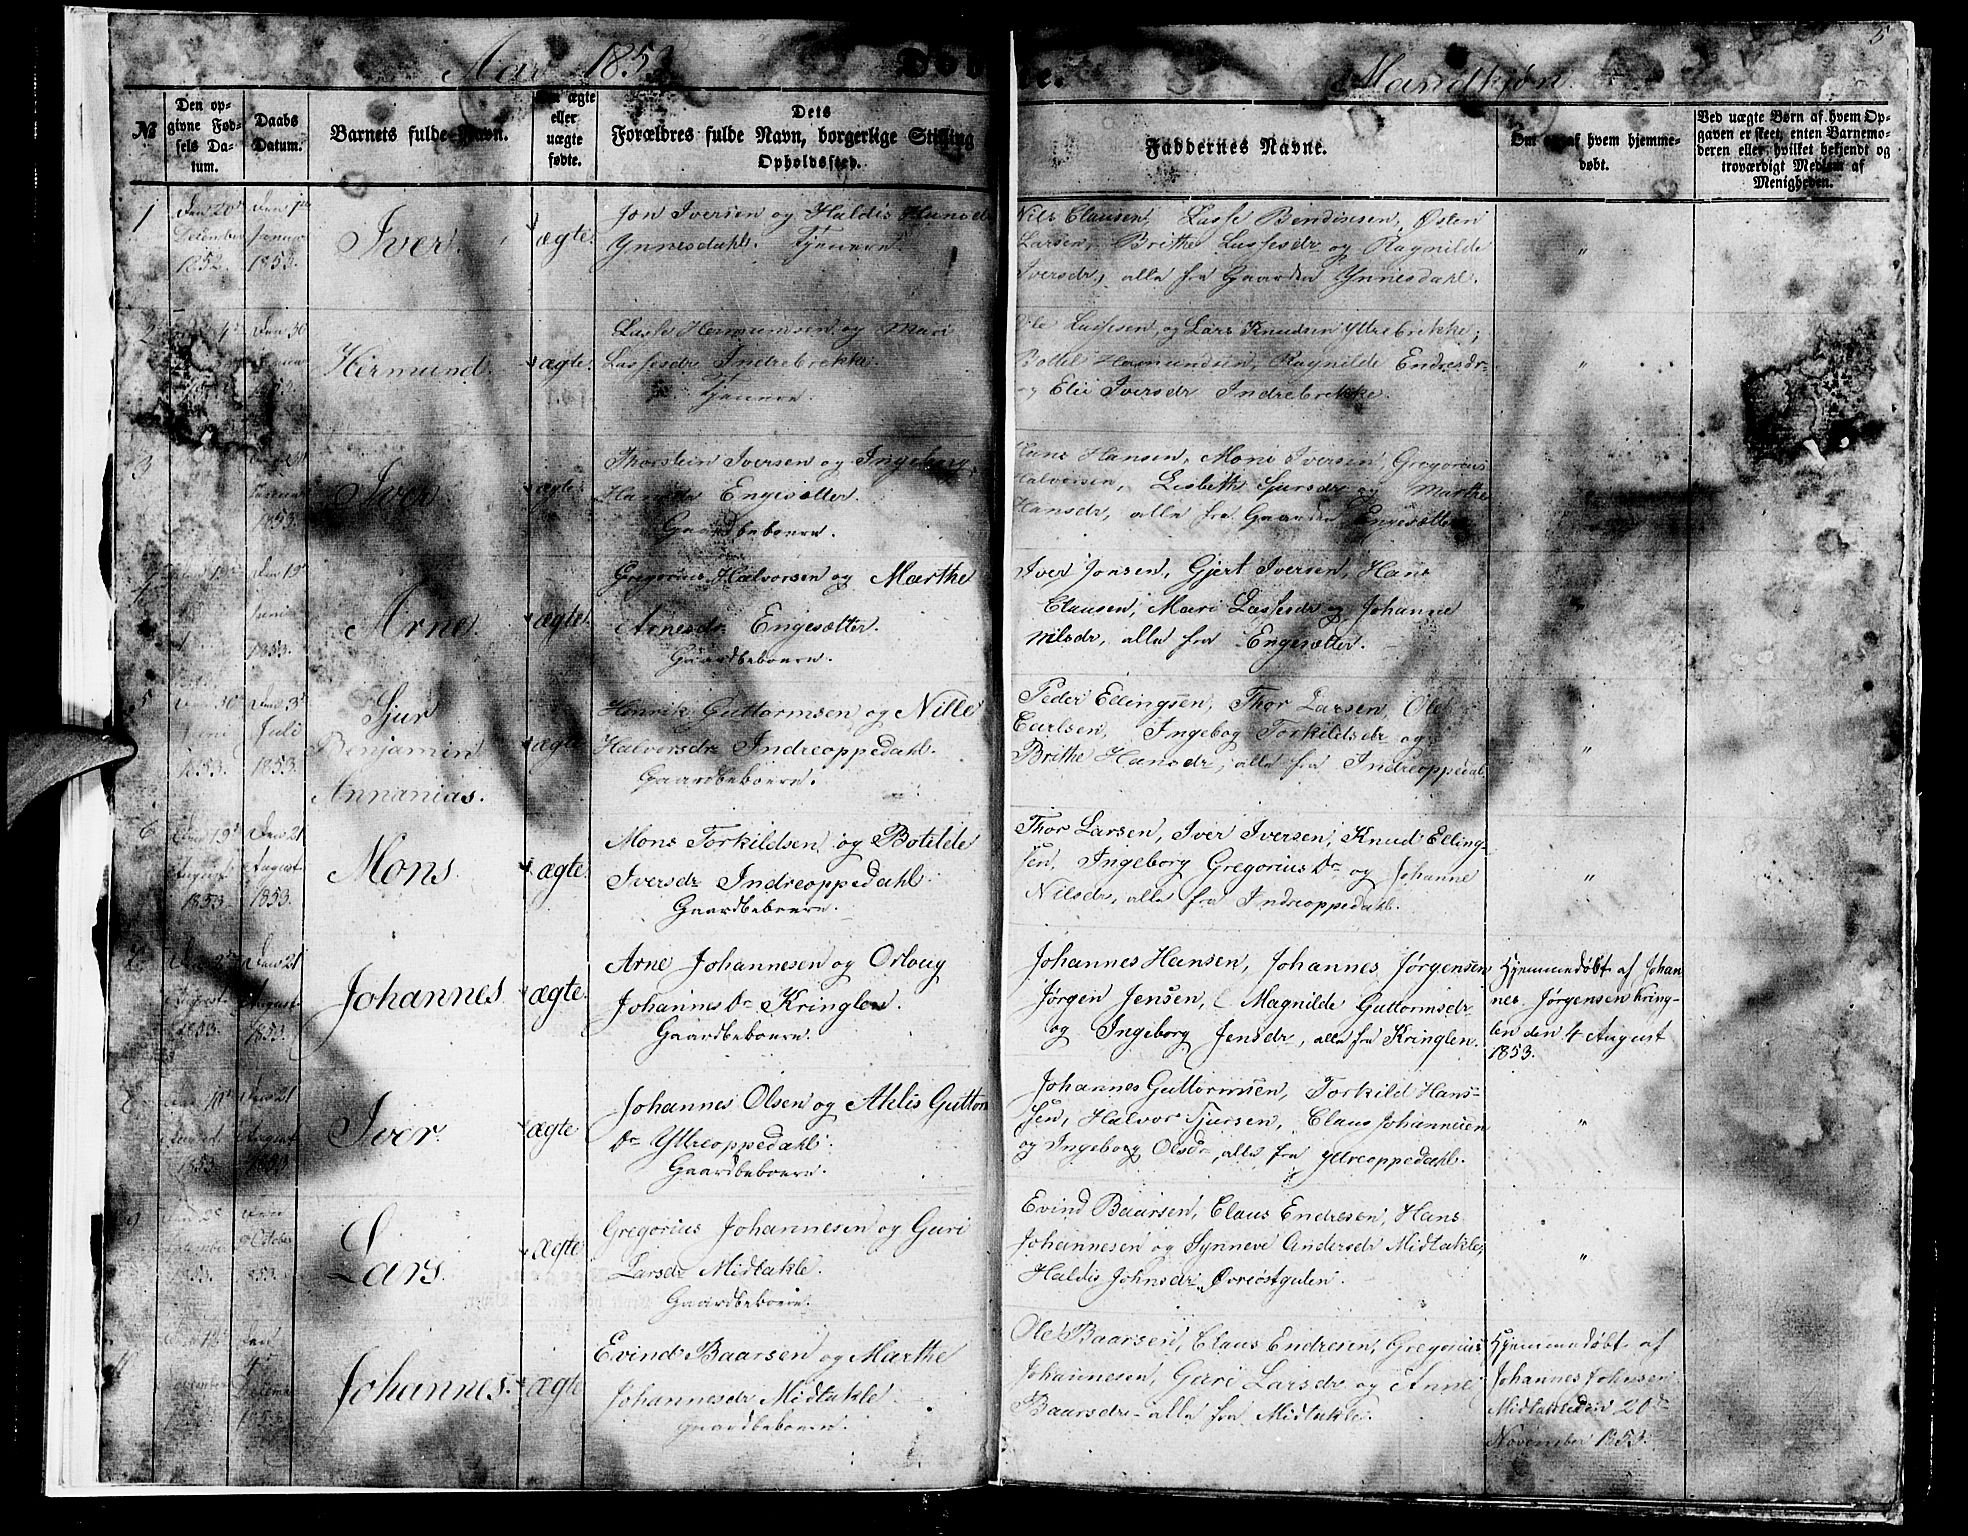 Aar 1853
Døbte.
Mandkjøn
5
№
Den opgivne Fødsels Datum.
Daabs Datum.
Barnets fulde Navn.
ægte eller uægte fødte.
Dets Forældres fulde Navn, borgerlige Stilling Opholdssted.
Faddernes Navne.
Om og af hvem hjemmedøbt.
Ved uægte Børn af hvem Opgaven er skeet, enten Barnemoderen eller hvilket bekjendt og troværdigt Medlem af Menigheden.
1
Den 20de December 1852.
Den 1te Januar 1853.
Iver.
ægte.
Jon Iversen og Haldis Hansdr
Ynnesdahl. Tjenere.
Nils Clausen, Lasse Bendixsen, Østen
Larsen, Brithe Lassesdr og Ragnilde
Iversdr, alle fra Gaarden Ynnesdahl.
"
2
Den 30
Hermund.
ægte.
Lasse Hermundsen og Mari
Lassesdr Indrebrekke.
Tjenere.
Ole Lassesen, og Lars Knudsen Yttrebrekke,
Bottel Hermundsen, Ragnilde Endresdr
og Elie Iversdr Indrebrekke.
"
3
1853.
Iver
ægte.
Thorstein Iversen og Ingeborg
Hansdr Engesætter.
Gaardbeboere.
Hans Hansen, Mons Iversen, Gregorius
Halvorsen, Lisbeth Sjursdr og Marthe
Hansdr, alle fra Gaarden Engesætter
4
Den 19de Juni 1853.
Arne.
ægte.
Gregorius Halvorsen og Marthe
Arnesdr Engesætter.
Gaardbeboere.
Iver Jonsen, Gjert Iversen, Hans
Clausen, Mari Lassesdr og Johanne
Nilsdr, alle fra Engesætter.
"
5
Juni 1853.
Den 3de Juli 1853.
Sjur
Benjamin
Annanias.
ægte
Henrik Guttormsen og Nille
Halvorsdr Indreoppedahl.
Gaardbeboere.
Peder Ellingsen, Thor Larsen, Ole
Carlsen, Ingebog Torkildsdr og
Brithe Hansdr, alle fra Indreoppedal
"
6
August 1853
Den 21 August 1853.
Mons
ægte.
Mons Torkildsen og Botilde
Iversdr Indreoppedahl.
Gaardbeboere.
Thor Larsen, Iver Iversen, Knud Elling-
sen, Ingeborg Gregoriusdr og Johanne
Nilsdr, alle fra Indreoppedahl.
"
7
August 1853.
Den 21 August 1853.
Johannes.
ægte.
Arne Johannesen og Orloug
Johannesdr Kringlen.
Gaardbeboere.
Johannes Hansen, Johannes Jørgensen
Jørgen Jensen, Magnilde Guttormsdr
og Ingeborg Jensdr, alle fra Kringlen.
Hjemmedøbt af Johan
nes Jørgensen Kring-
len den 4 August
1853.
8
August 1853
Den 21 August 1853
Iver.
ægte
Johannes Olsen og Ahlis Guttorms
dr Yttreoppedahl.
Gaardbeboere.
Johannes Guttormsen, Torkild Hans-
sen, Halvor Sjursen, Claus Johannesen
og Ingeborg Olsdr, alle fra Yttreoppedahl.
"
9
September 1853.
Den October 1853.
Lars.
ægte
Gregorius Johannesen og Guri
Larsdr Midtakle.
Gaardbeboere.
Evind Baarsen, Claus Endresen, Hans
Johannesen og Synneve Andersdr Midtakle,
Haldis Johnsdr Øvreøstgulen.
"
Den 4de December 1853
Johannes.
ægte
Evind Baarsen og Marthe
Johannesdr Midtakle
Gaardbeboere.
Ole Baarsen, Claus Endresen, Gregorius
Johannesen, Guri Larsdr og Anne
Baarsdr alle fra Midtakle.
Hjemmedøbt af
Johannes Johnsen
Midtakle den 20de
November 1853.